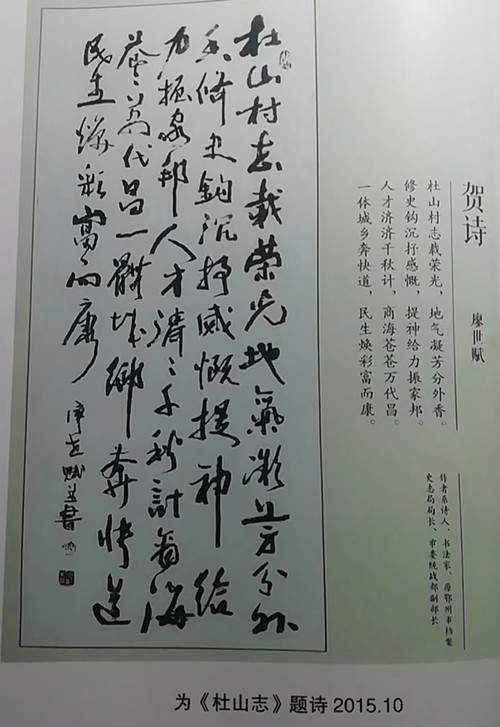 贺诗
廖世赋
杜山村志载荣光，地气凝芳分外香。
修史钩沉抒感慨，提神给力振家邦。
人才济济千秋计，商海苍苍万代昌。
一体城乡奔快道，民生焕彩富而康。
作者系诗人、书法家、原鄂州市档案
史志局局长、市委统战部副部长
杜山村志载榮光地氣凝芳分外
香修史钩沉抒感慨提神给
力振家邦人才濟〻千秋計商海
苍〻万代昌一體城鄉奔快道
民生焕彩富而康
廖世赋并書
为《杜山志》题诗 2015.10